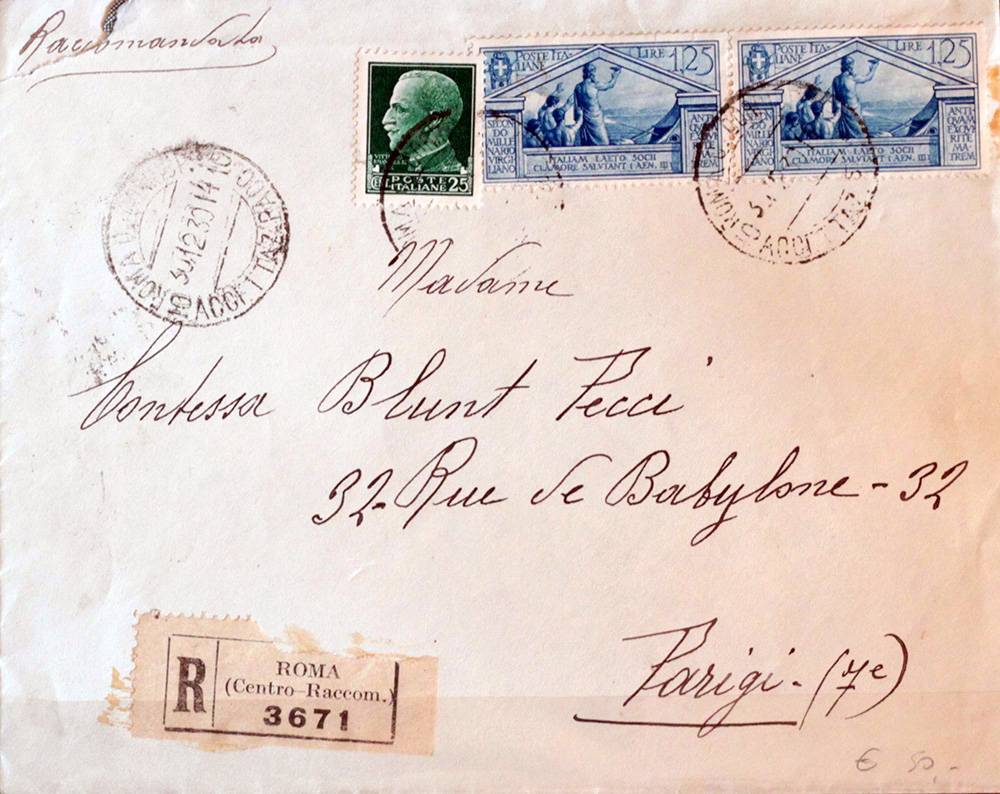 Raccomandata
POSTE ITALIANE
LIRE 1,25
SECONDO MILLENARIO VIRGILIANO
ANTIQVAM EXQVIRITE MATREM
ITALIAM LAETO SOCII
CLAMORE SALVTANT (AEN. III)
POSTE ITALIANE
LIRE 1,25
SECONDO MILLENARIO VIRGILIANO
ANTIQVAM EXQVIRITE MATREM
ITALIAM LAETO SOCII
CLAMORE SALVTANT (AEN. III)
POSTE
ITALIANE
CENT 25
ROMA
30.12.30 14
ACCETTAZ. RACC
ROMA
ACCETTAZ
Madame
Contessa Blunt Pecci
32 - Rue de Babylone - 32
Parigi - (7e)
R
ROMA
(Centro-Raccom.)
3671
€ 50,-